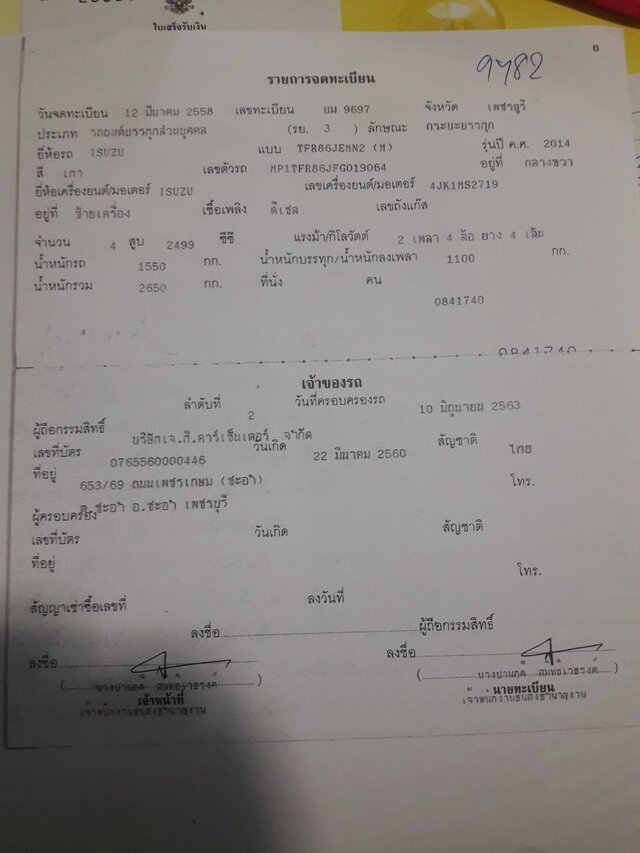 ใบเสร็จรับเงิน
6
รายการจดทะเบียน
9782
วันจดทะเบียน 12 มีนาคม 2558 เลขทะเบียน บม 9697 จังหวัด เพชรบุรี
ประเภท รถยนต์บรรทุกส่วนบุคคล (รย. 3 ) ลักษณะ กระบะบรรทุก
ยี่ห้อรถ ISUZU แบบ TFR86JEMN2 (M) รุ่นปี ค.ศ. 2014
สี เทา เลขตัวรถ MP1TFR86JFG019064 อยู่ที่ กลางขวา
ยี่ห้อเครื่องยนต์/มอเตอร์ ISUZU เลขเครื่องยนต์/มอเตอร์ 4JK1MS2719
อยู่ที่ ซ้ายเครื่อง เชื้อเพลิง ดีเซล เลขถังแก๊ส
จำนวน 4 สูบ 2499 ซีซี แรงม้า/กิโลวัตต์ 2 เพลา 4 ล้อ ยาง 4 เส้น
น้ำหนักรถ 1550 กก. น้ำหนักบรรทุก/น้ำหนักลงเพลา 1100 กก.
น้ำหนักรวม 2650 กก. ที่นั่ง คน
0841740
0841740
เจ้าของรถ
ลำดับที่ 2 วันที่ครอบครองรถ 10 มิถุนายน 2563
ผู้ถือกรรมสิทธิ์ บริษัทเจ.ที.คาร์เซ็นเตอร์ จำกัด
เลขที่บัตร 0765560000446 วันเกิด 22 มีนาคม 2560 สัญชาติ ไทย
ที่อยู่ 653/69 ถนนเพชรเกษม (ชะอำ) โทร.
ต.ชะอำ อ.ชะอำ เพชรบุรี
ผู้ครอบครอง
เลขที่บัตร วันเกิด สัญชาติ
ที่อยู่ โทร.
สัญญาเช่าซื้อเลขที่ ลงวันที่
ลงชื่อ ผู้ถือกรรมสิทธิ์
ลงชื่อ ลงชื่อ
เจ้าหน้าที่ นายทะเบียน